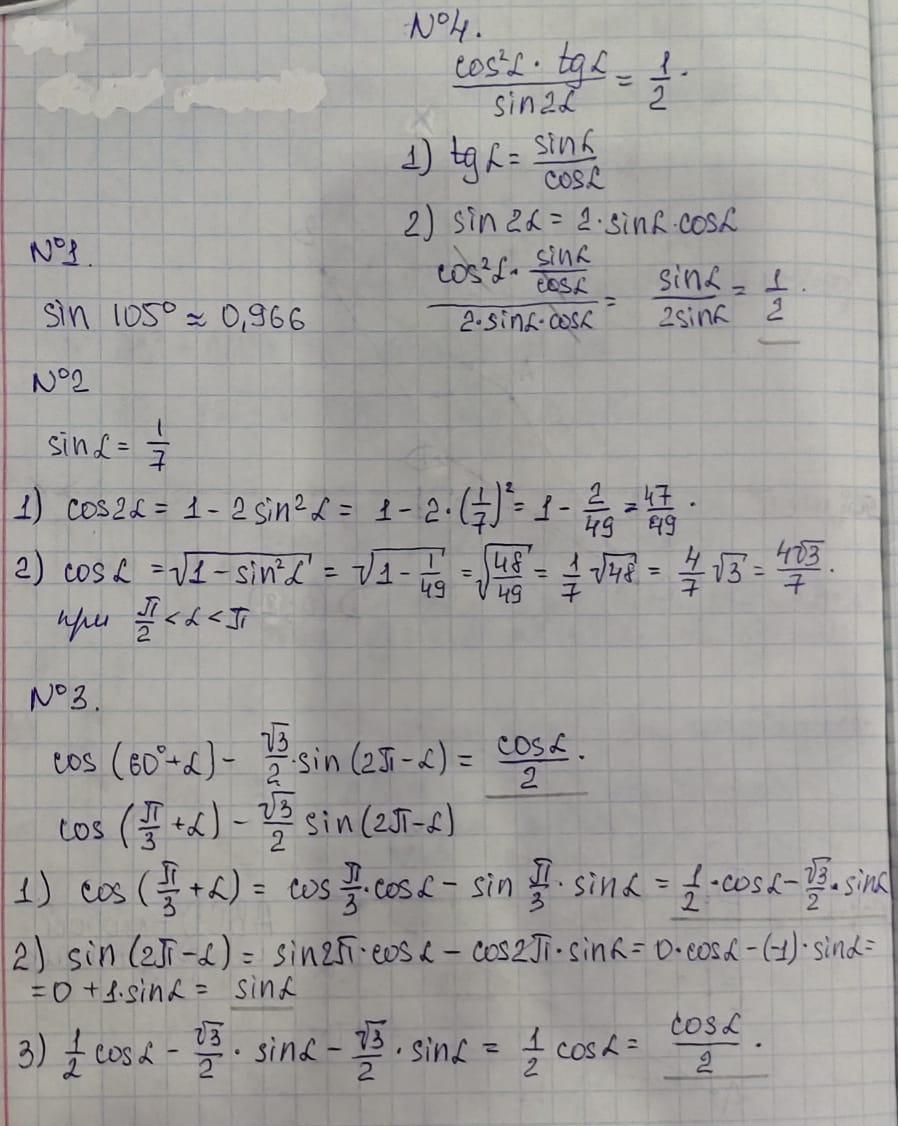 №4.
cos²α · tgα / sin2α = 1/2.
1) tgα = sinα/cosα
2) sin2α = 2·sinα·cosα
cos²α · (sinα/cosα) / 2·sinα·cosα = sinα/2sinα = 1/2.
№1.
sin 105° ≈ 0,966
№2
sinα = 1/7
1) cos2α = 1 - 2sin²α = 1 - 2·(1/7)² = 1 - 2/49 = 47/49.
2) cosα = √(1-sin²α) = √(1 - 1/49) = √(48/49) = 1/7 √48 = 4/7 √3 = 4√3/7.
при π/2 < α < π
№3.
cos (60°+α) - √3/2 · sin (2π-α) = cosα/2.
cos (π/3 +α) - √3/2 sin (2π-α)
1) cos (π/3 + α) = cos π/3 · cosα - sin π/3 · sinα = 1/2 · cosα - √3/2 · sinα
2) sin (2π-α) = sin2π·cosα - cos2π·sinα = 0·cosα - (-1)·sinα =
= 0 + 1·sinα = sinα
3) 1/2 cosα - √3/2 · sinα - √3/2 · sinα = 1/2 cosα = cosα/2.